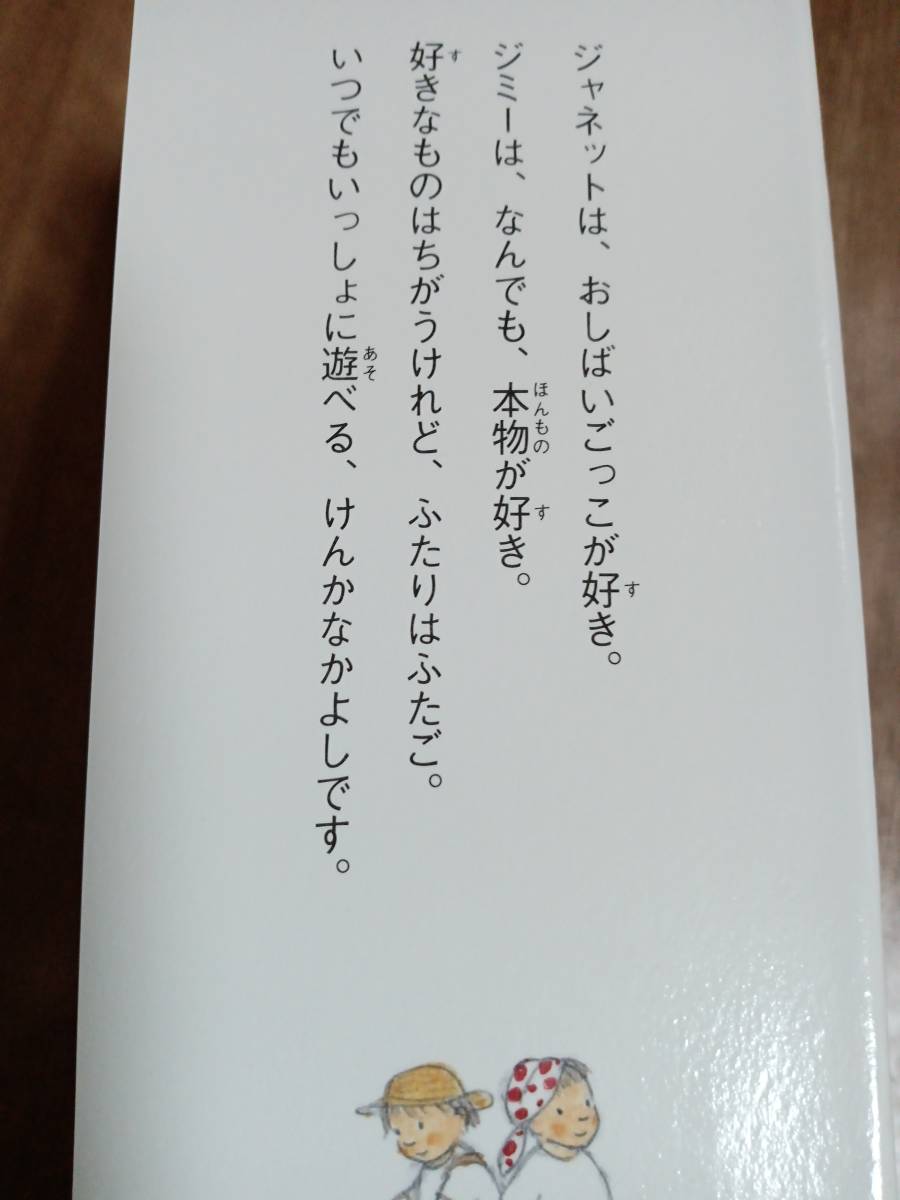 ジャネットは、おしばいごっこが好き。
ジミーは、なんでも、本物が好き。
好きなものはちがうけれど、ふたりはふたご。
いつでもいっしょに遊べる、けんかなかよしです。